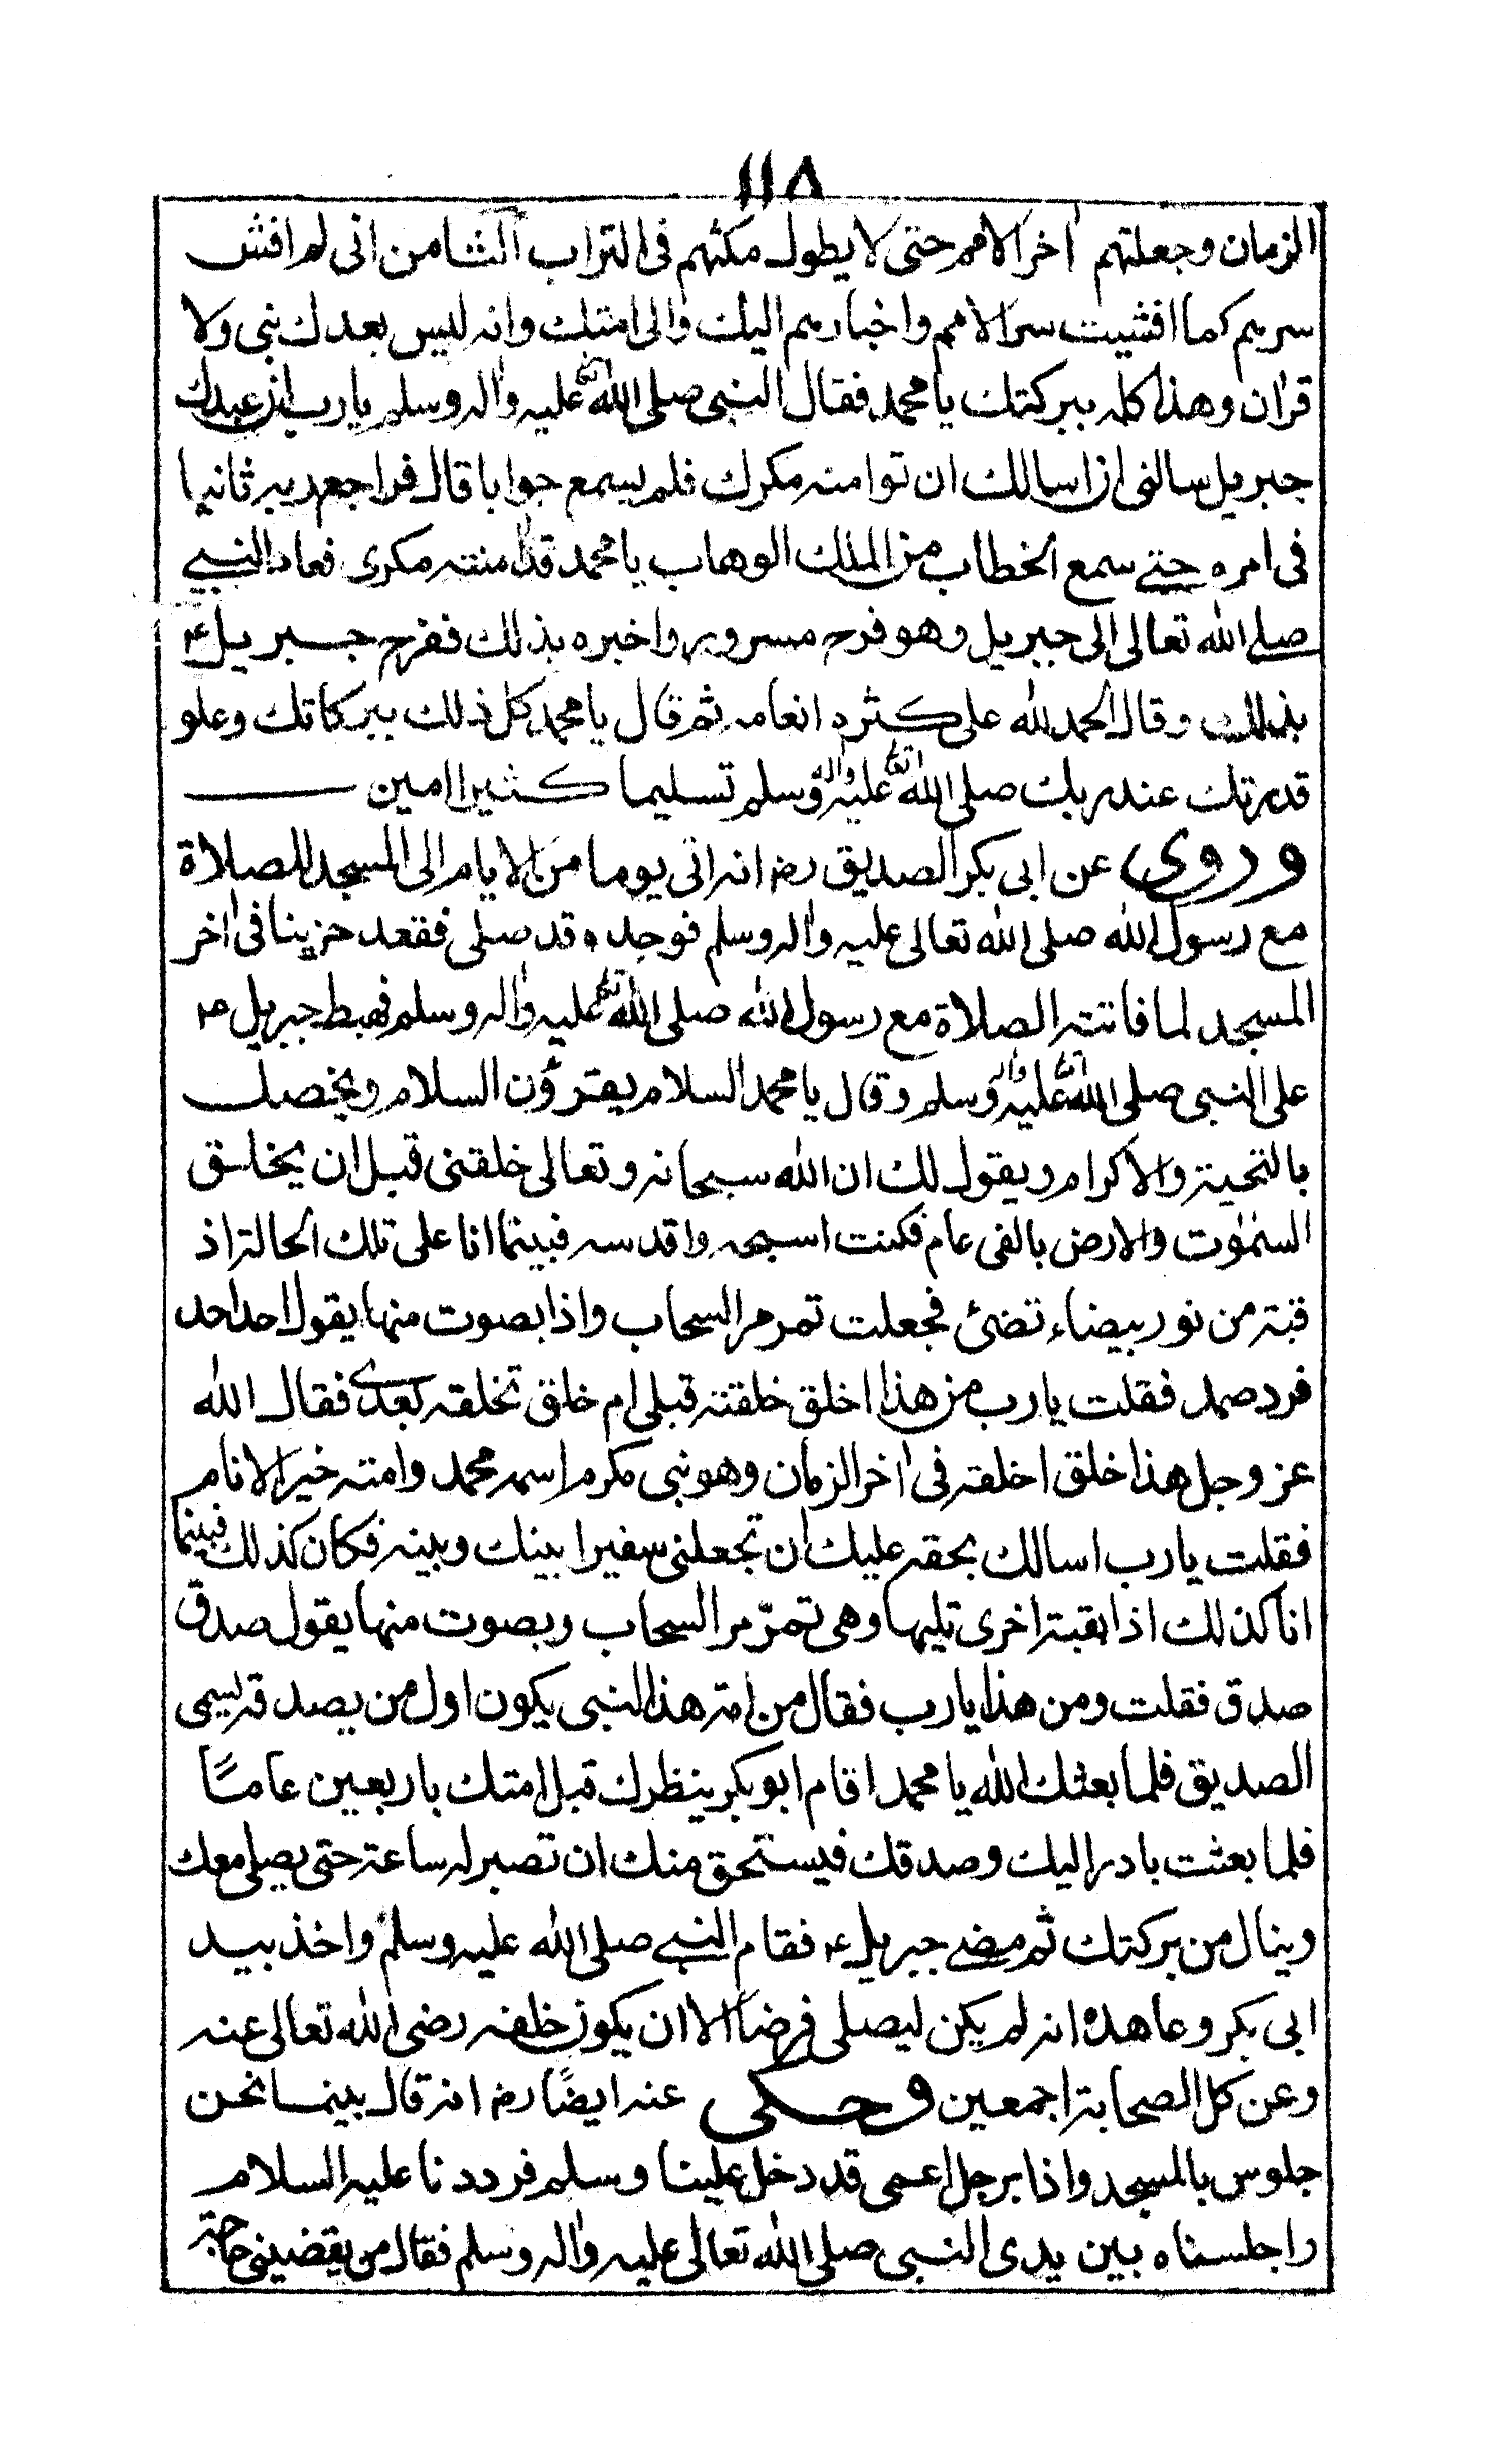 ١١٨
الزمان وجعلتهم اٰخر الامم حتى لا يطول مكثهم فى التراب الثامن انى لم افش
سرهم كما افشيت سر الامم واخبارهم اليك والى امتك وانه ليس بعدك نبى ولا
قراٰن وهذا كله ببركتك يا محمد فقال النبى صلى الله تعالى عليه واٰله وسلم يا رب ان عبدك
جبريل سالنى ان اسالك ان توامنه مكرك فلم يسمع جوابا قال فراجع ربه ثانيا
فى امره حتى سمع الخطاب من الملك الوهاب يا محمد قد اٰمنته مكرى فعاد النبى
صلى الله تعالى الى جبريل وهو فرح مسرور واخبره بذلك ففرح جبريل ع
بذلك وقال الحمد لله على كثره انعامه ثم قال يا محمد كل ذلك ببركاتك وعلو
قدرتك عند ربك صلى الله تعالى عليه واٰله وسلم تسليما كثيرا امين
وروى عن ابى بكر الصديق رض انه اتى يوما من الايام الى المسجد للصلاة
مع رسول الله صلى الله تعالى عليه واٰله وسلم فوجده قد صلى فقعد حزينا فى اٰخر
المسجد لما فاتته الصلاة مع رسول الله صلى الله تعالى عليه واٰله وسلم فهبط جبريل ع
على النبى صلى الله تعالى عليه واٰله وسلم وقال يا محمد السلام يقرؤن السلام ويخصك
بالتحية والاكرام ويقول لك ان الله سبحانه وتعالى خلقنى قبل ان يخلق
السمٰوٰت والارض بالفى عام فكنت اسبحه واقدسه فبينما انا على تلك الحالة اذ
قبة من نور بيضاء تضئ فجعلت تمر مر السحاب واذا بصوت منها يقول احد احد
فرد صمد فقلت يا رب من هذا اخلق خلقته قبلى ام خلق تخلقه بعدى فقال الله
عز وجل هذا خلق اخلقه فى اٰخر الزمان وهو نبى مكرم اسمه محمد وامته خير الانام
فقلت يا رب اسالك بحقه عليك ان تجعلنى سفيرا بينك وبينه فكان كذلك فبينما
انا كذلك اذا بقبة اخرى تليها وهى تمرّ مر السحاب وبصوت منها يقول صدق
صدق فقلت ومن هذا يا رب فقال من امة هذا النبى يكون اول من يصدقه يسمى
الصديق فلما بعثك الله يا محمد اقام ابو بكر ينظرك قبل امتك باربعين عامًا
فلما بعثت بادر اليك وصدقك فيستحق منك ان تصبر له ساعة حتى يصلى معك
وينال من بركتك ثم مضى جبريل ع فقام النبى صلى الله عليه وسلم واخذ بيد
ابى بكر وعاهده انه لم يكن ليصلى فرضا الا ان يكون خلفه رضى الله تعالى عنه
وعن كل الصحابة اجمعين وحكى عنه ايضًا رض انه قال بينما نحن
جلوس بالمسجد واذا برجل اعمى قد دخل علينا وسلم فرددنا عليه السلام
واجلسناه بين يدى النبى صلى الله تعالى عليه واٰله وسلم فقال من يقضينى حاجة